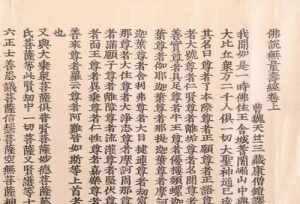 佛説無量壽經卷上
曹魏天竺三藏康僧鎧譯
我聞如是一時佛住王舍城耆闍崛山中與
大比丘衆萬二千人俱一切大聖神通已達
其名曰尊者了本際尊者正願尊者正語尊
者大號尊者仁賢尊者離垢尊者名聞尊者
善實尊者具足尊者牛王尊者優樓頻蠡迦
葉尊者伽耶迦葉尊者那提迦葉尊者摩訶
迦葉尊者舍利弗尊者大目揵連尊者劫賓
那尊者大住尊者大淨志尊者摩訶周那尊
者滿願子尊者離障尊者流灌尊者堅伏尊
者面王尊者異乘尊者仁性尊者嘉樂尊者
善來尊者羅云尊者阿難皆如斯等上首者
也
又與大乘衆菩薩俱普賢菩薩妙德菩薩慈
氏菩薩等此賢劫中一切菩薩又賢護等十
六正士善思議菩薩信慧菩薩空無菩薩